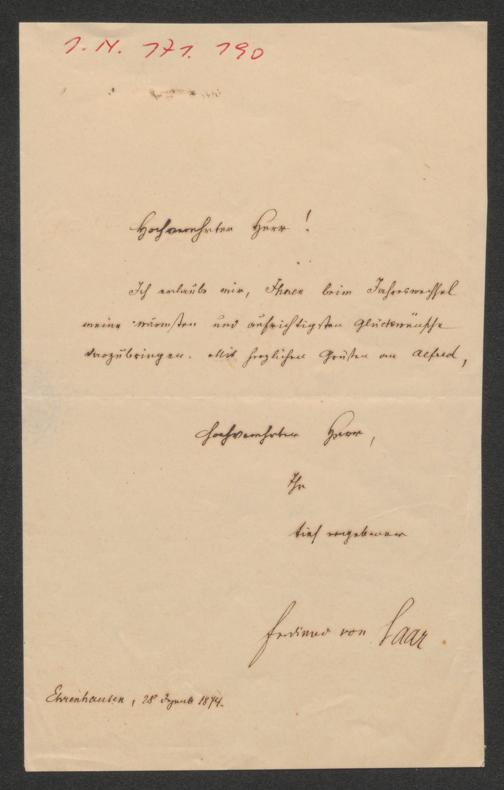 I. N. 171.190
Hochverehrter Herr!
Ich erlaube mir, Ihnen beim Jahreswechsel
meine wärmsten und aufrichtigsten Glückwünsche
darzubringen. Mit herzlichen Grüßen an Alfred,
hochverehrter Herr,
Ihr
tief ergebener
Ferdinand von Saar.
Ehrenhausen, 28 Dezemb 1874.